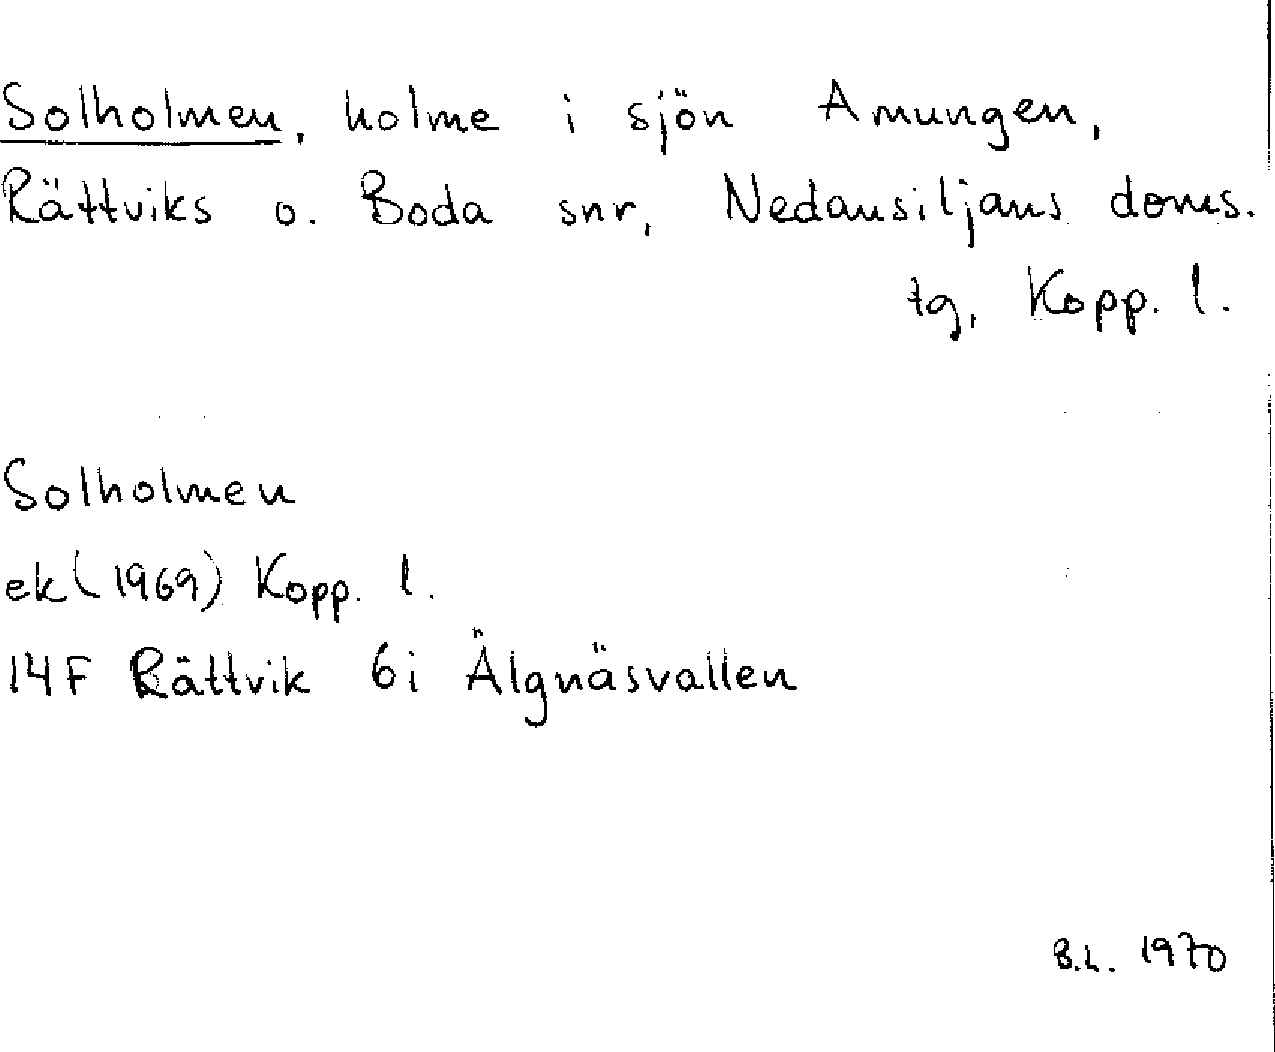 Solholmen, holme i sjön Amungen,
Rättviks o. Boda snr, Nedansiljans doms.
tg, Kopp. l.
Solholmen
ek (1969) Kopp. l.
14F Rättvik 6i Älgnäsvallen
B.L. 1970